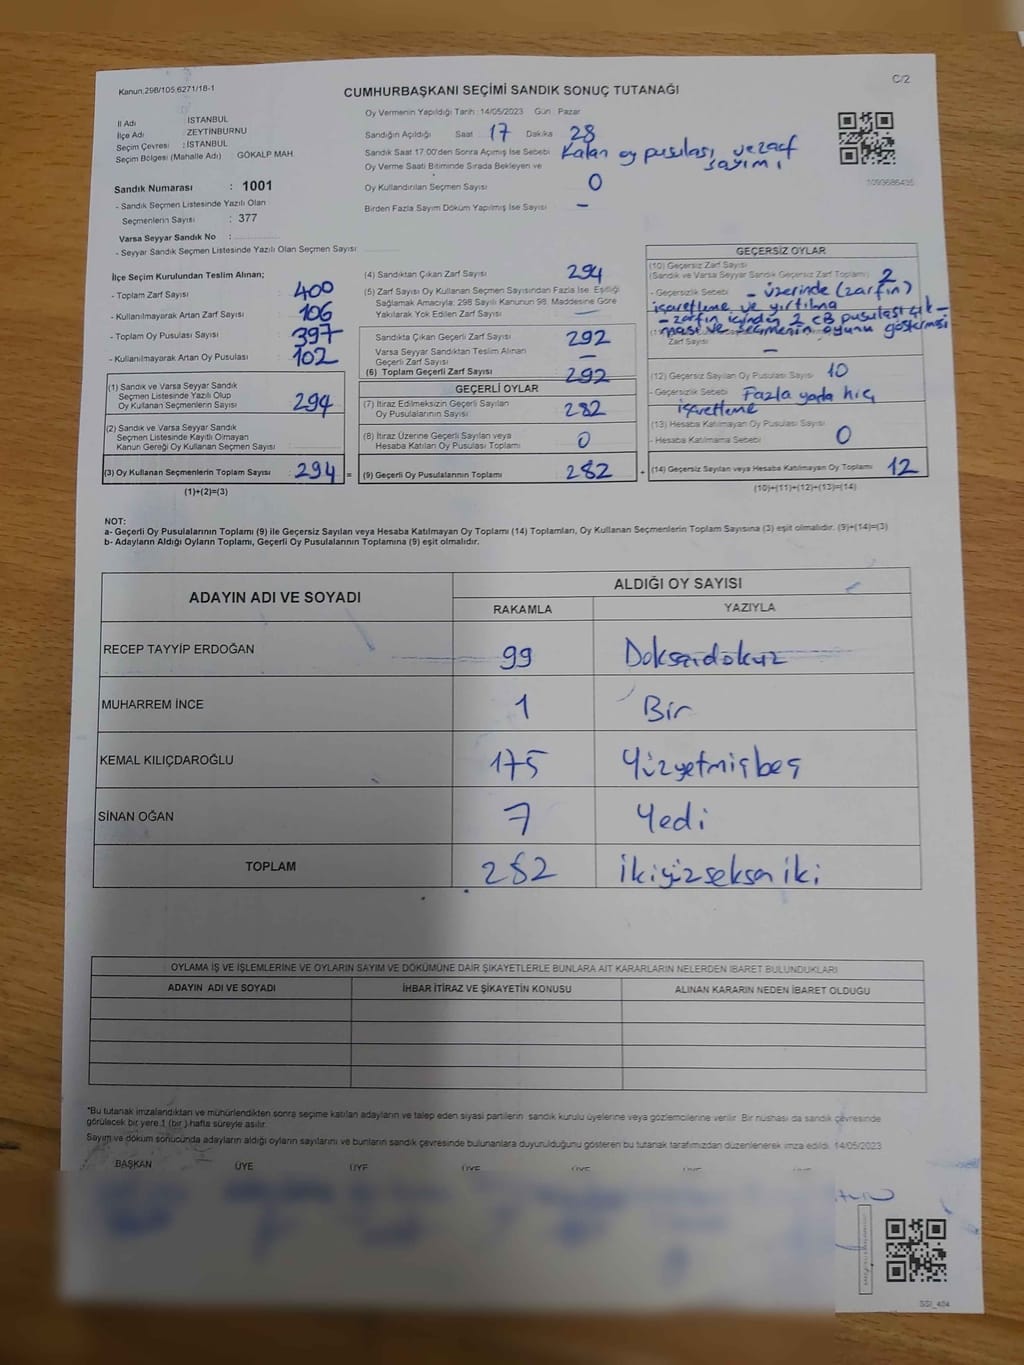 Kanun:298/105,6271/18-1
C/2
CUMHURBAŞKANI SEÇİMİ SANDIK SONUÇ TUTANAĞI
İl Adı : İSTANBUL
İlçe Adı : ZEYTİNBURNU
Seçim Çevresi : İSTANBUL
Seçim Bölgesi (Mahalle Adı) : GÖKALP MAH.
Sandık Numarası : 1001
- Sandık Seçmen Listesinde Yazılı Olan
Seçmenlerin Sayısı : 377
Varsa Seyyar Sandık No :
- Seyyar Sandık Seçmen Listesinde Yazılı Olan Seçmen Sayısı
Oy Vermenin Yapıldığı Tarih : 14/05/2023 Gün : Pazar
Sandığın Açıldığı Saat 17 Dakika 28
Sandık Saat 17:00'den Sonra Açımış İse Sebebi Kalan oy pusulası, ve zarf
sayımı
Oy Verme Saati Bitiminde Sırada Bekleyen ve
Oy Kullandırılan Seçmen Sayısı 0
Birden Fazla Sayım Döküm Yapılmış İse Sayısı –
1093686435
İlçe Seçim Kurulundan Teslim Alınan;
- Toplam Zarf Sayısı : 400
- Kullanılmayarak Artan Zarf Sayısı : 106
- Toplam Oy Pusulası Sayısı : 397
- Kullanılmayarak Artan Oy Pusulası : 102
(1) Sandık ve Varsa Seyyar Sandık
Seçmen Listesinde Yazılı Olup
Oy Kullanan Seçmenlerin Sayısı : 294
(2) Sandık ve Varsa Seyyar Sandık
Seçmen Listesinde Kayıtlı Olmayan
Kanun Gereği Oy Kullanan Seçmen Sayısı :
(3) Oy Kullanan Seçmenlerin Toplam Sayısı : 294 =
(1)+(2)=(3)
(4) Sandıktan Çıkan Zarf Sayısı : 294
(5) Zarf Sayısı Oy Kullanan Seçmen Sayısından Fazla İse, Eşitliği
Sağlamak Amacıyla; 298 Sayılı Kanunun 98. Maddesine Göre
Yakılarak Yok Edilen Zarf Sayısı : –
Sandıkta Çıkan Geçerli Zarf Sayısı : 292
Varsa Seyyar Sandıktan Teslim Alınan
Geçerli Zarf Sayısı : –
(6) Toplam Geçerli Zarf Sayısı : 292
GEÇERLİ OYLAR
(7) İtiraz Edilmeksizin Geçerli Sayılan
Oy Pusulalarının Sayısı : 282
(8) İtiraz Üzerine Geçerli Sayılan veya
Hesaba Katılan Oy Pusulası Toplamı : 0
(9) Geçerli Oy Pusulalarının Toplamı : 282 +
GEÇERSİZ OYLAR
(10) Geçersiz Zarf Sayısı
(Sandık ve Varsa Seyyar Sandık Geçersiz Zarf Toplamı) : 2
- Geçersizlik Sebebi : - üzerinde (zarfın)
işaretleme ve yırtılma
- zarfın içinden 2 CB pusulası çık-
ması ve seçmenin oyunu göstermesi
Zarf Sayısı : –
(12) Geçersiz Sayılan Oy Pusulası Sayısı : 10
- Geçersizlik Sebebi : Fazla yada hiç
işaretleme
(13) Hesaba Katılmayan Oy Pusulası Sayısı : 0
- Hesaba Katılmama Sebebi
(14) Geçersiz Sayılan veya Hesaba Katılmayan Oy Toplamı : 12
(10)+(11)+(12)+(13)=(14)
NOT:
a- Geçerli Oy Pusulalarının Toplamı (9) ile Geçersiz Sayılan veya Hesaba Katılmayan Oy Toplamı (14) Toplamları, Oy Kullanan Seçmenlerin Toplam Sayısına (3) eşit olmalıdır. (9)+(14)=(3)
b- Adayların Aldığı Oyların Toplamı, Geçerli Oy Pusulalarının Toplamına (9) eşit olmalıdır.
ADAYIN ADI VE SOYADI
ALDIĞI OY SAYISI
RAKAMLA YAZIYLA
RECEP TAYYİP ERDOĞAN 99 Doksandokuz
MUHARREM İNCE 1 Bir
KEMAL KILIÇDAROĞLU 175 Yüzyetmişbeş
SİNAN OĞAN 7 Yedi
TOPLAM 282 İkiyüzseksen iki
OYLAMA İŞ VE İŞLEMLERİNE VE OYLARIN SAYIM VE DÖKÜMÜNE DAİR ŞİKAYETLERLE BUNLARA AİT KARARLARIN NELERDEN İBARET BULUNDUKLARI
ADAYIN ADI VE SOYADI İHBAR İTİRAZ VE ŞİKAYETİN KONUSU ALINAN KARARIN NEDEN İBARET OLDUĞU
*Bu tutanak imzalandıktan ve mühürlendikten sonra seçime katılan adayların ve talep eden siyasi partilerin sandık kurulu üyelerine veya gözlemcilerine verilir. Bir nüshası da sandık çevresinde
görülecek bir yere 1 (bir ) hafta süreyle asılır.
Sayım ve döküm sonucunda adayların aldığı oyların sayılarını ve bunların sandık çevresinde bulunanlara duyurulduğunu gösteren bu tutanak tarafımızdan düzenlenerek imza edildi. 14/05/2023
BAŞKAN ÜYE ÜYE ÜYE ÜYE ÜYE ÜYE
SSI_404